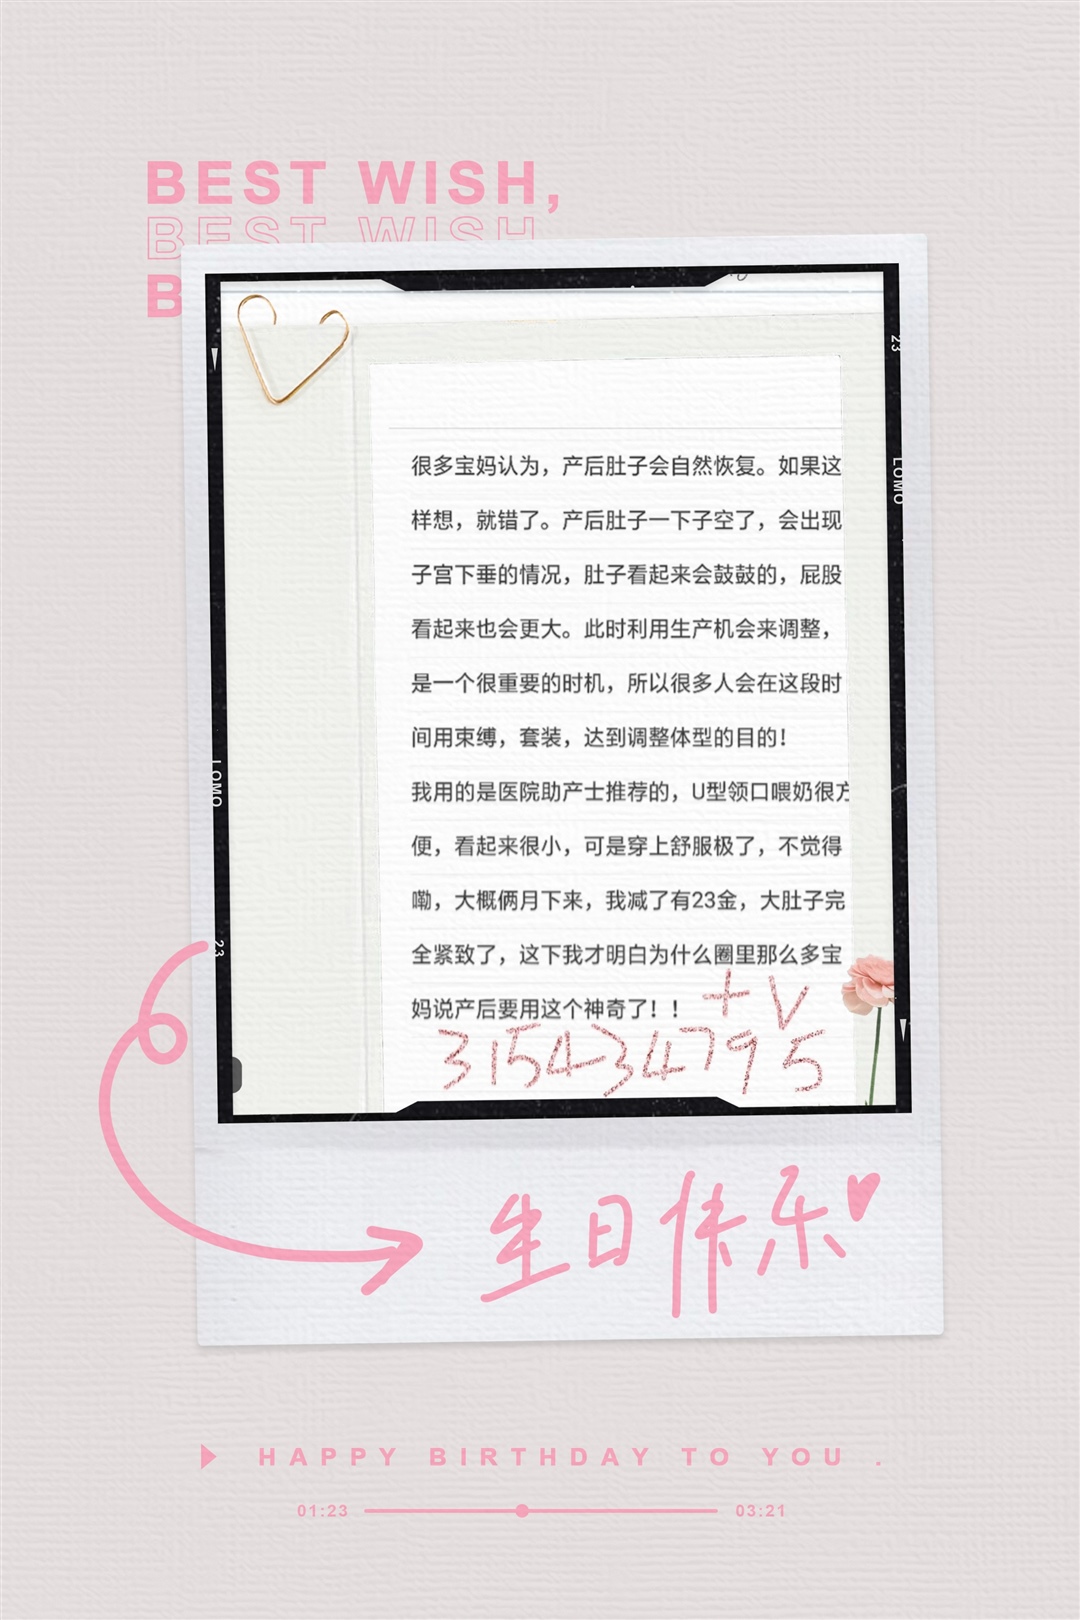 BEST WISH,
BEST WISH
B
23
LOMO
很多宝妈认为，产后肚子会自然恢复。如果这
样想，就错了。产后肚子一下子空了，会出现
子宫下垂的情况，肚子看起来会鼓鼓的，屁股
看起来也会更大。此时利用生产机会来调整，
是一个很重要的时机，所以很多人会在这段时
间用束缚，套装，达到调整体型的目的！
我用的是医院助产士推荐的，U型领口喂奶很方
便，看起来很小，可是穿上舒服极了，不觉得
嘞，大概俩月下来，我减了有23金，大肚子完
全紧致了，这下我才明白为什么圈里那么多宝
妈说产后要用这个神奇了！！
+V
3154434795
LOMO
23
生日快乐
HAPPY BIRTHDAY TO YOU .
01:23
03:21